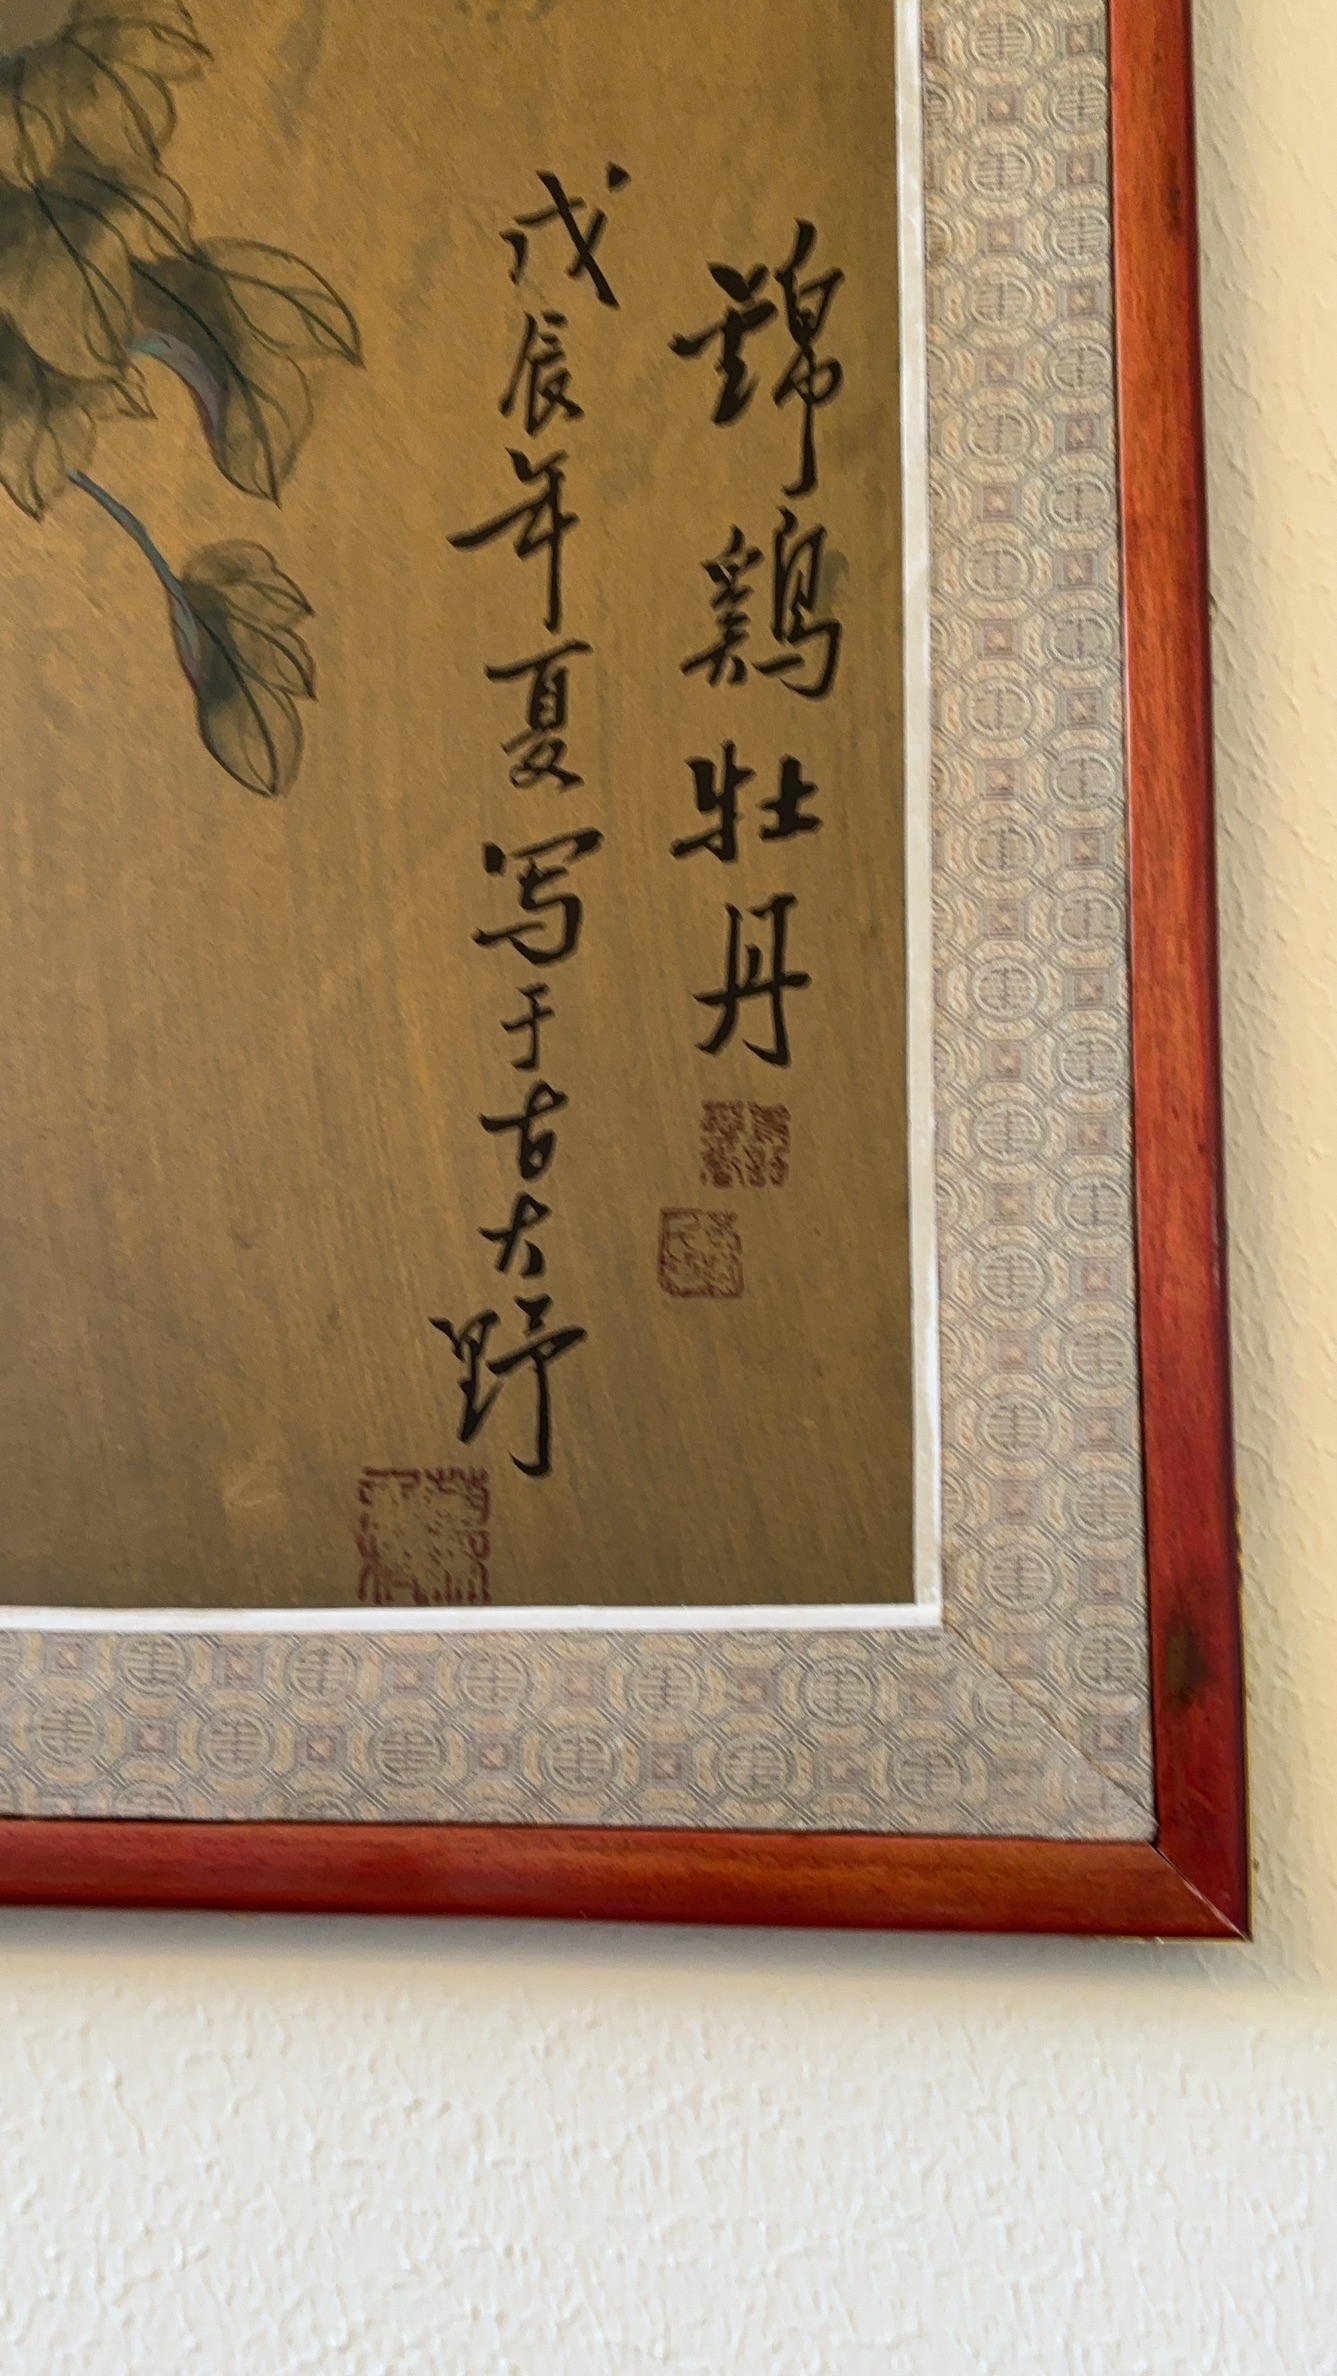 錦鷄牡丹
戊辰年夏写于古大野